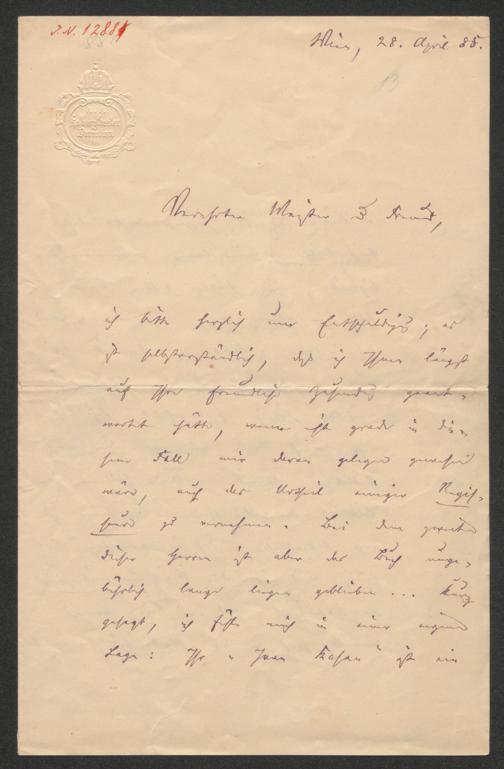 J.N. 12881
Wien, 28. April 85.
13
Verehrter Meister & Freund,
ich bitte herzlich um Entschuldigg; es
ist selbstverständlich, daß ich Ihnen längst
auf Ihre freundliche geant-
wortet hätte, wenn nicht grade in die-
sem Fall mir daran gelegen gewesen
wäre, auch das Urtheil einiger Regis-
seure zu vernehmen. Bei dem zweiten
dieser Herren ist aber das Buch unge-
bührlich lange liegen geblieben ... Kurz
gesagt, ich fühle mich in einer eigenen
Lage: Ihr " Juan " ist ein